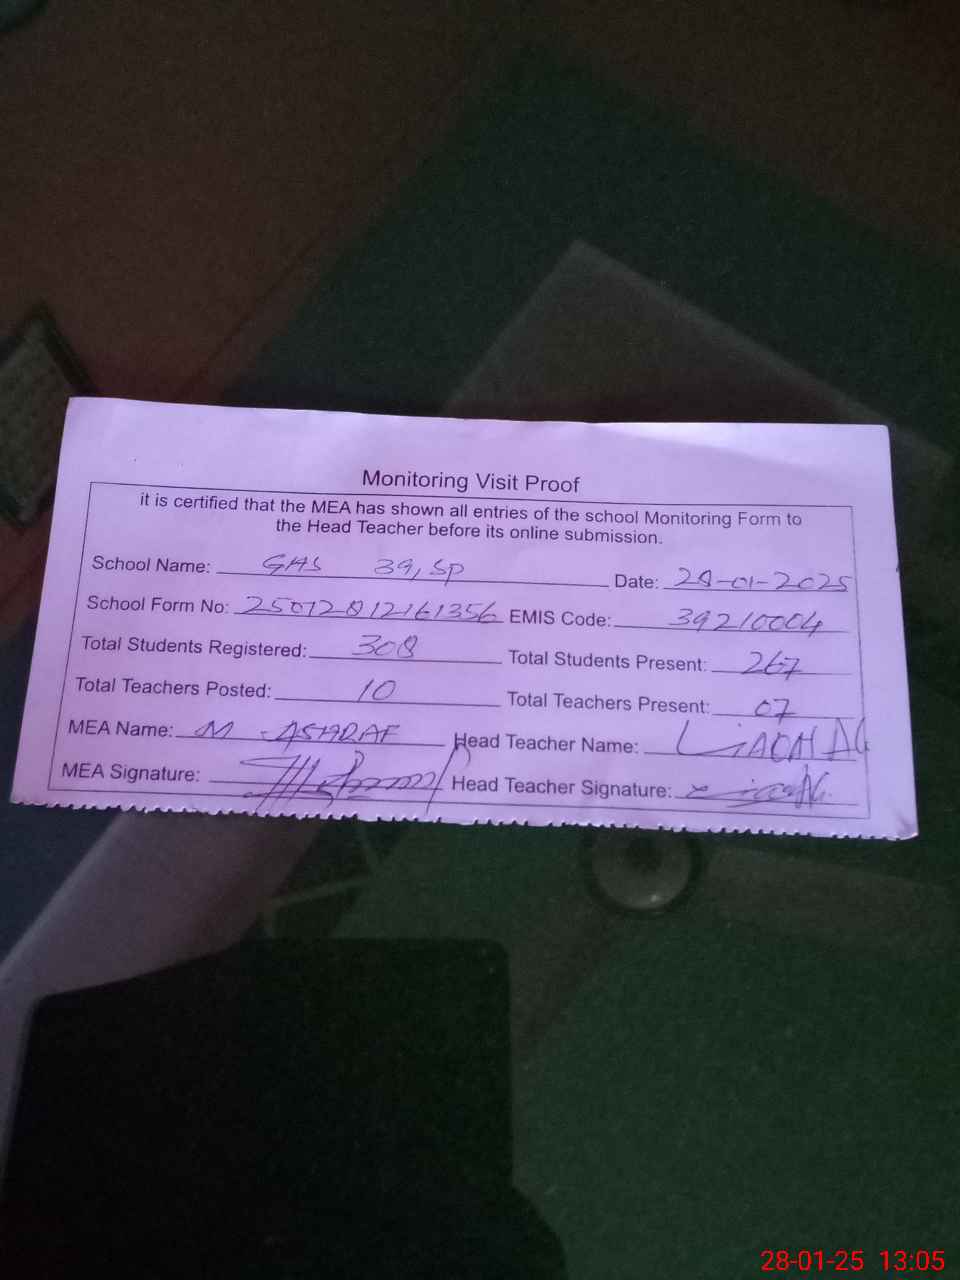 Monitoring Visit Proof
it is certified that the MEA has shown all entries of the school Monitoring Form to
the Head Teacher before its online submission.
School Name: GHS 39, SP Date: 28-01-2025
School Form No: 25012812161356 EMIS Code: 39210004
Total Students Registered: 308 Total Students Present: 267
Total Teachers Posted: 10 Total Teachers Present: 07
MEA Name: M. ASHRAF Head Teacher Name:
MEA Signature: Head Teacher Signature:
28-01-25 13:05